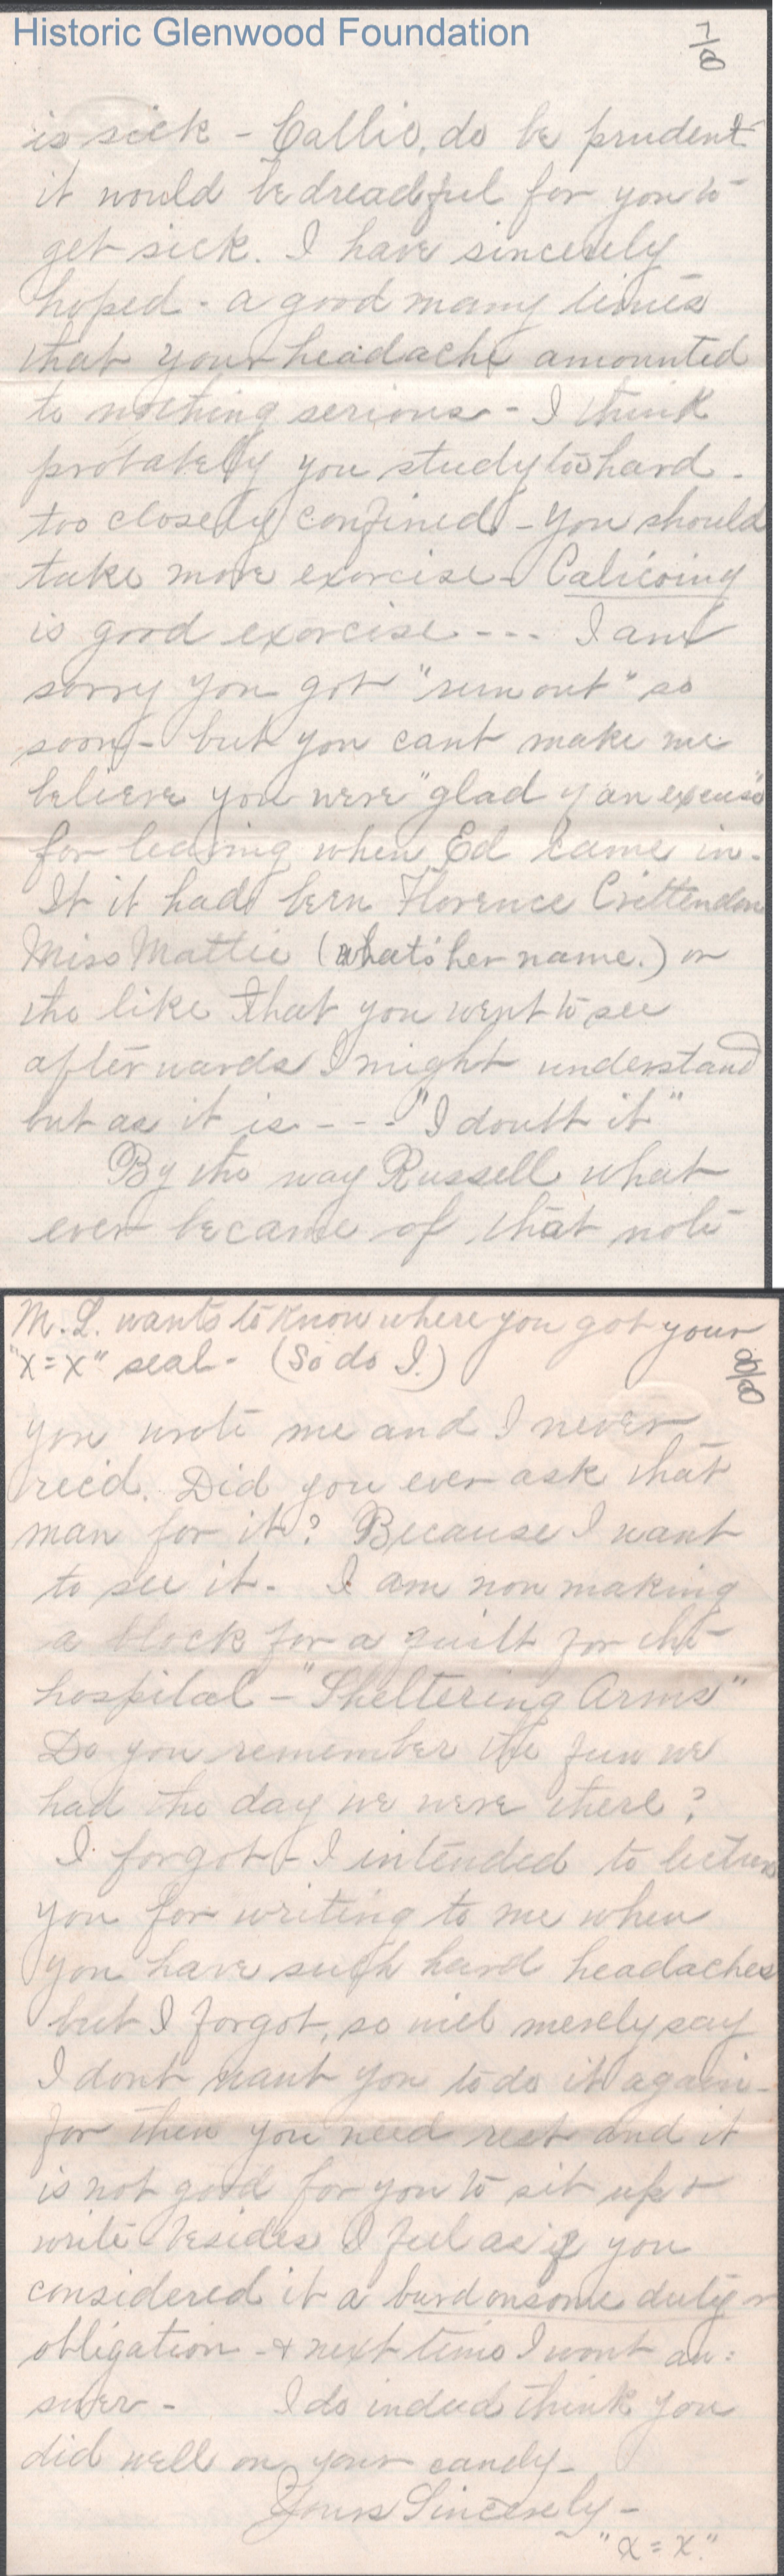 Historic Glenwood Foundation
7/8
is sick - Callie, do be prudent
it would be dreadful for you to
get sick. I have sincerely
hoped - a good many times
that your headache amounted
to nothing serious - I think
probabely you study too hard -
too closely confined - you should
take more exercise - Calicoing
is good exorcise - - - I am
sorry you got "run out" so
soon - but you cant make me
believe you were "glad of an excuse"
for leaving when Ed came in.
If it had been Florence Crittenden
Miss Mattie (what's her name.) or
the like that you went to see
afterwards I might understand
but as it is - - - "I doubt it"
By the way Russell what
ever became of that note
M. L. wants to know where you got your
"x = x" seal - (So do I.)
8/8
you wrote me and I never
rec'd. Did you ever ask that
man for it? Because I want
to see it. I am now making
a block for a quilt for the
hospital - "Sheltering Arms"
Do you remember the fun we
had the day we were there?
I forgot - I intended to lecture
you for writing to me when
you have such hard headaches
but I forgot, so will merely say
I dont want you to do it again -
for then you need rest and it
is not good for you to sit up &
write - besides I feel as if you
considered it a burdonsome duty or
obligation - & next time I wont an=
swer - I do indeed think you
did well on your candy -
Yours Sincerely -
"x = x."